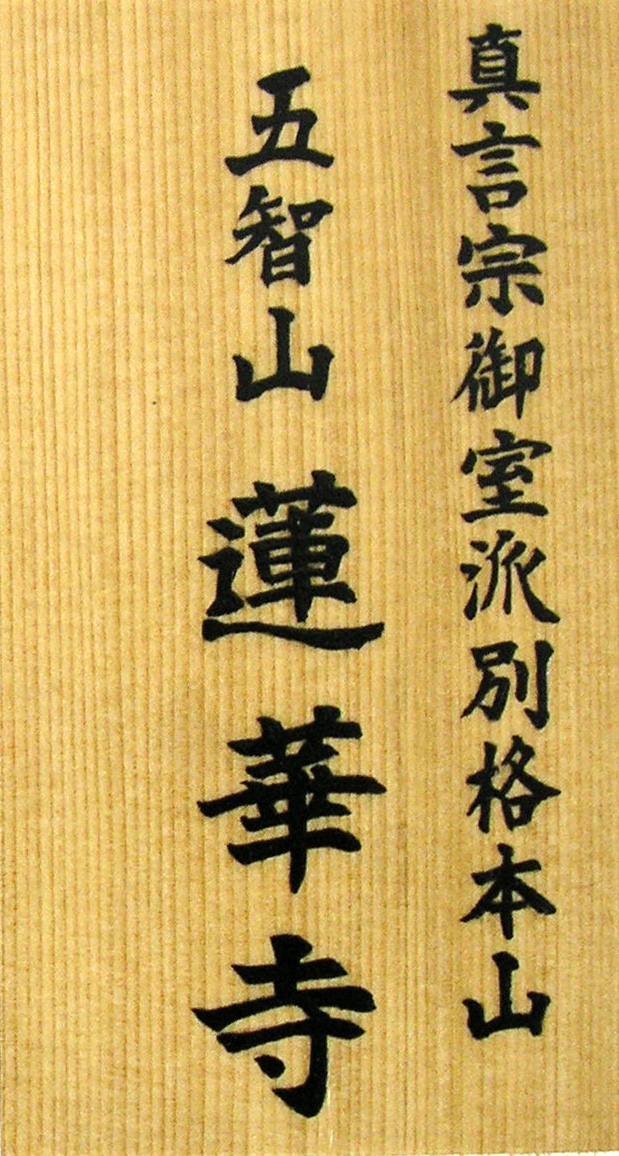 真言宗御室派別格本山
五智山 蓮華寺